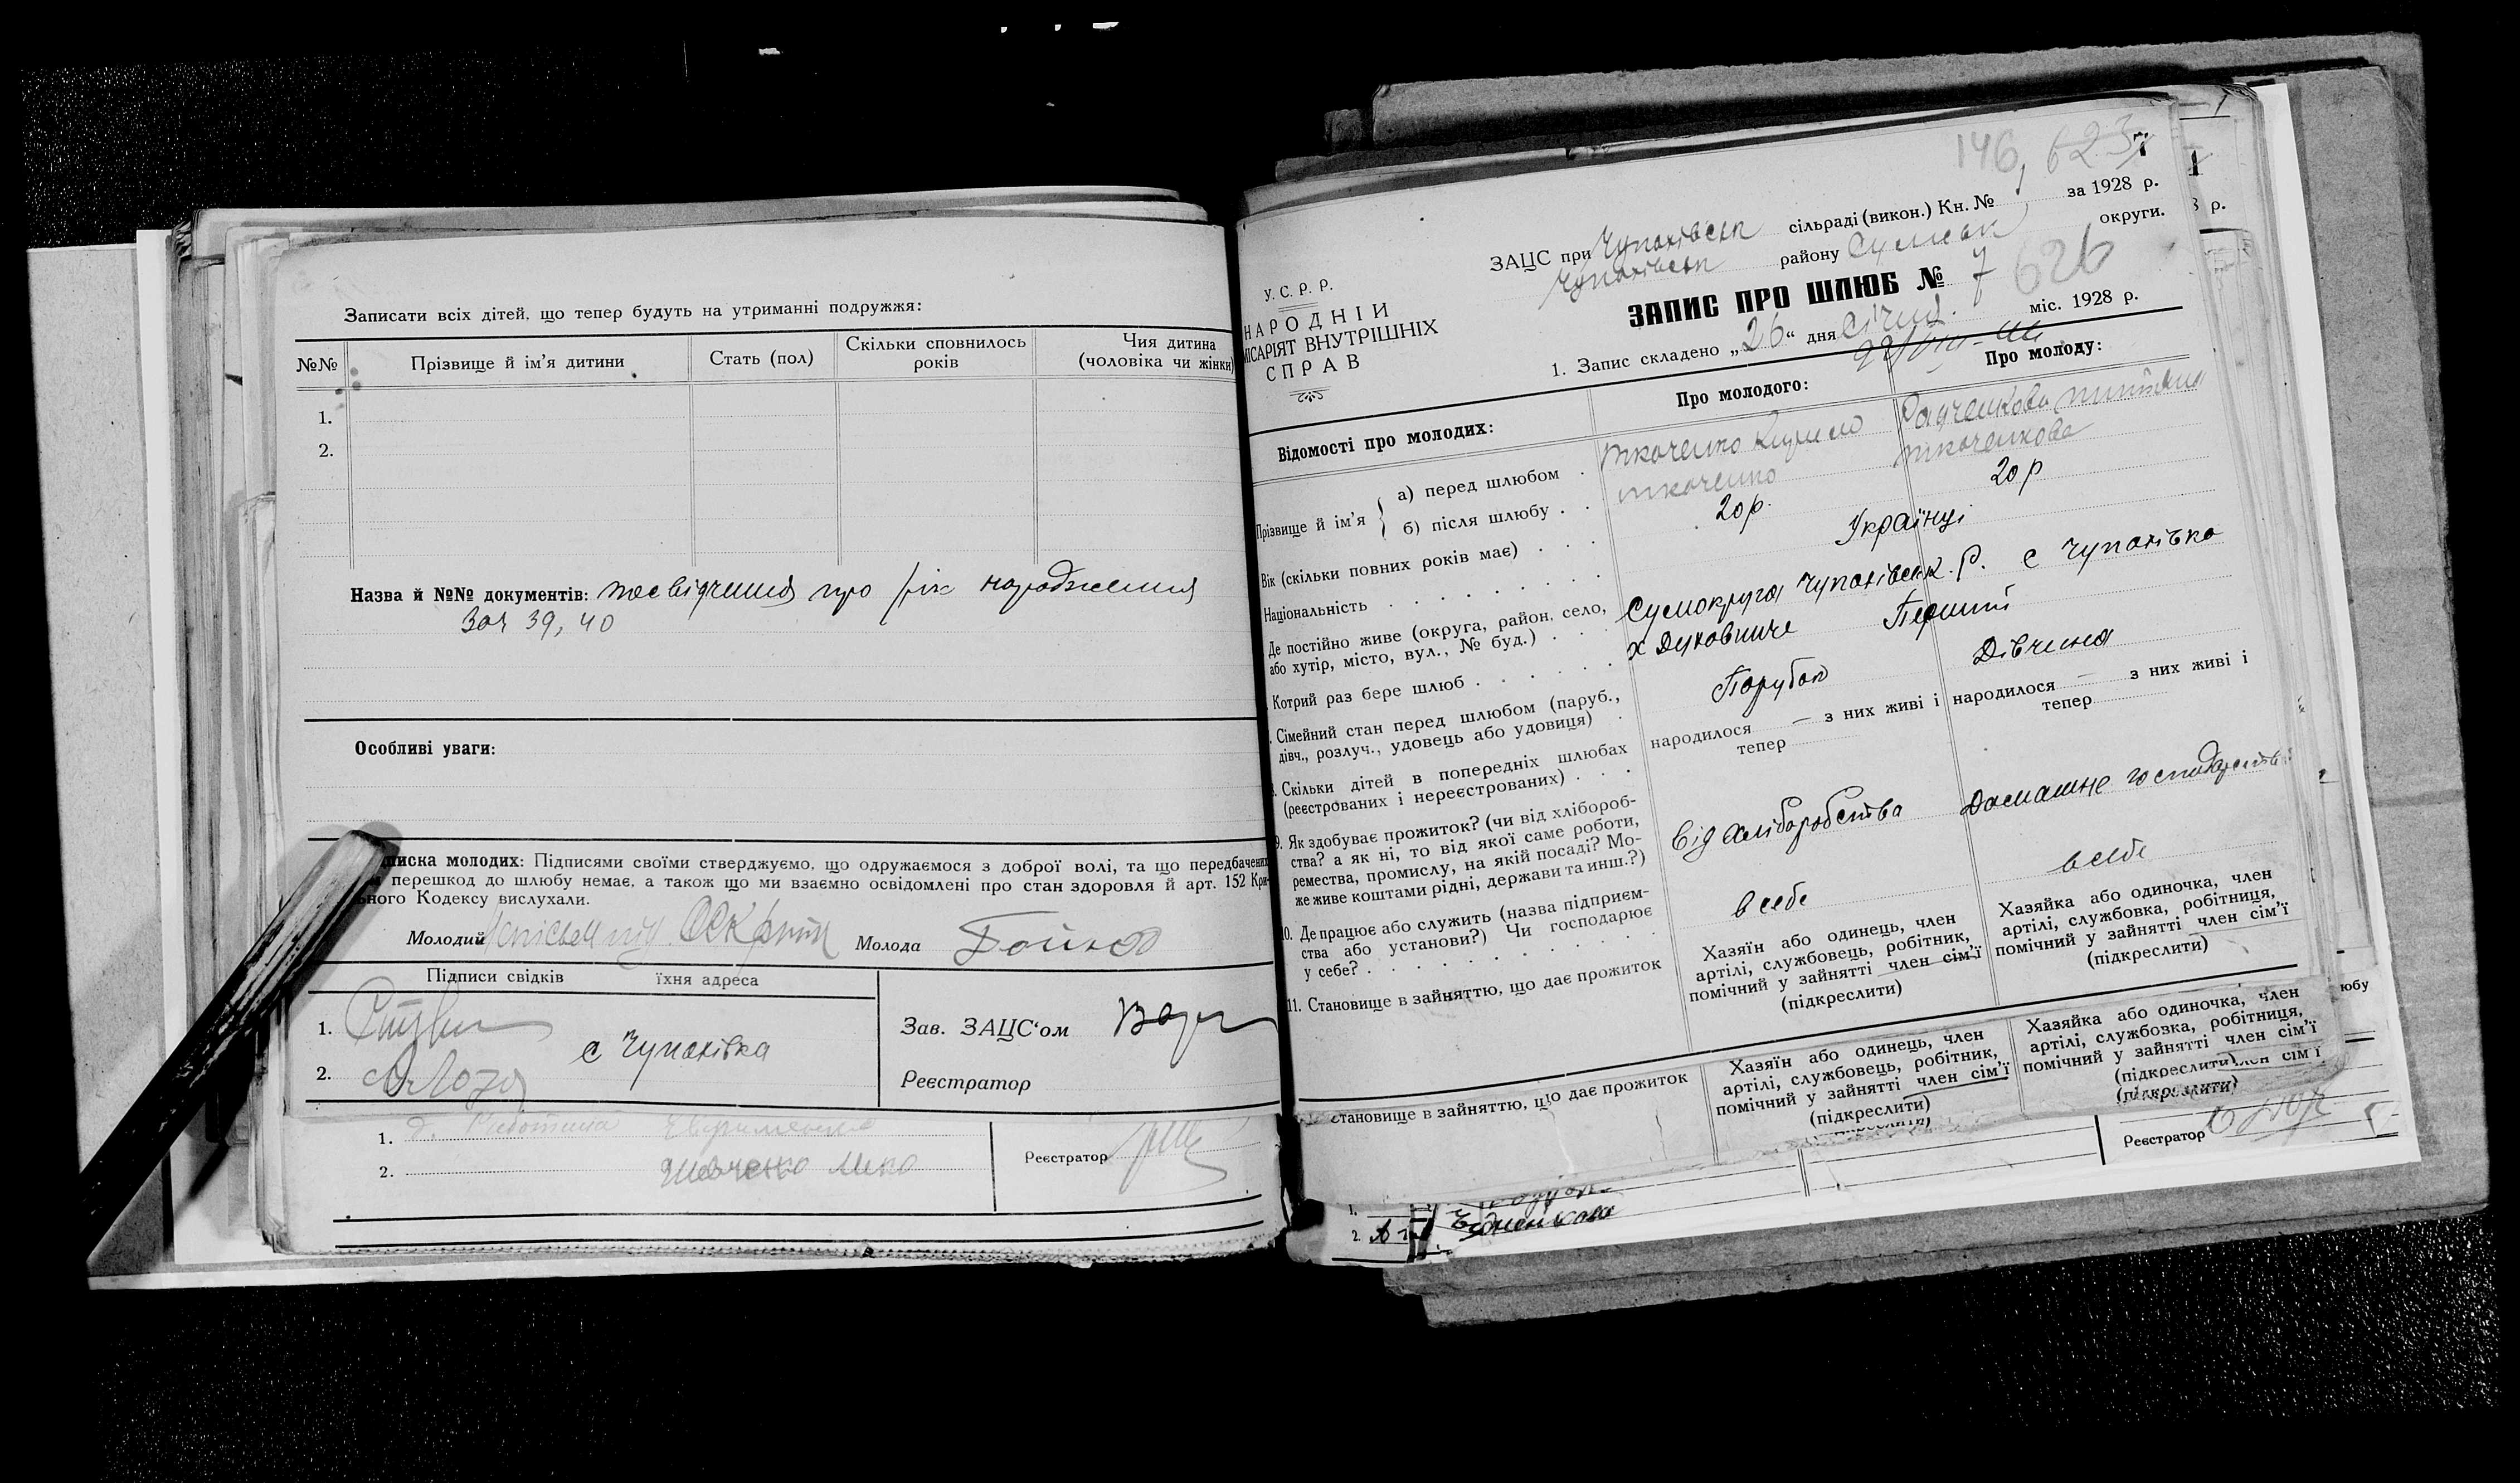 Записати всіх дітей, що тепер будуть на утриманні подружжя:
№№ Прізвище й ім'я дитини Стать (пол) Скільки сповнилось років Чия дитина (чоловіка чи жінки)
1.
2.
Назва й №№ документів: посвідчення про рік народження
39, 40
Особливі уваги:
писка молодих: Підписями своїми стверджуємо, що одружаємося з доброї волі, та що передбачених
перешкод до шлюбу немає, а також що ми взаємно освідомлені про стан здоровля й арт. 152 Кри-
ьного Кодексу вислухали.
Молодий Молода Бойко
Підписи свідків їхня адреса
1.
с Чупахівка
2.
Зав. ЗАЦС'ом
Реєстратор
1.
2.
Реєстратор
146 623 7
ЗАЦС при Чупахівськ сільраді (викон.) Кн. № за 1928 р.
Чупахівськ району Сумськ округи.
У.С.Р.Р.
НАРОДНІЙ
МІСАРІЯТ ВНУТРІШНІХ
СПРАВ
ЗАПИС ПРО ШЛЮБ № 7 626
1. Запис складено „26“ дня Січня міс. 1928 р.
Відомості про молодих: Про молодого: Про молоду:
Прізвище й ім'я { а) перед шлюбом . Ткаченко Кирило Радченкова Титтяна
б) після шлюбу . . Ткаченко Ткаченкова
Вік (скільки повних років має) . . . 20 р. 20 р
Національність . . . . . . . . Українці
Де постійно живе (округа, район, село, або хутір, місто, вул., № буд.) . . . Сумокруга Чупахівськ. Р. с Чупахівка
х Духовниче
Котрий раз бере шлюб . . . . . . Перший
Сімейний стан перед шлюбом (паруб., дівч., розлуч., удовець або удовиця) . Парубок Дівчина
Скільки дітей в попередніх шлюбах (реєстрованих і нереєстрованих) . . . народилося — з них живі і тепер народилося — з них живі і тепер
9. Як здобуває прожиток? (чи від хлібороб-
ства? а як ні, то від якої саме роботи,
ремества, промислу, на якій посаді? Мо-
же живе коштами рідні, держави та инш.?)
Від хліборобства Домашне господарство
10. Де працює або служить (назва підприєм-
ства або установи?) Чи господарює
у себе? . . . . . . . . . .
в себе в себе
11. Становище в зайняттю, що дає прожиток
Хазяїн або одинець, член
артілі, службовець, робітник,
помічний у зайнятті член сім'ї
(підкреслити)
Хазяйка або одиночка, член
артілі, службовка, робітниця,
помічний у зайнятті член сім'ї
(підкреслити)
становище в зайняттю, що дає прожиток
Хазяїн або одинець, член
артілі, службовець, робітник,
помічний у зайнятті член сім'ї
(підкреслити)
Хазяйка або одиночка, член
артілі, службовка, робітниця,
помічний у зайнятті член сім'ї
(підкреслити) член сім'ї
(підкреслити)
Реєстратор
1.
2.